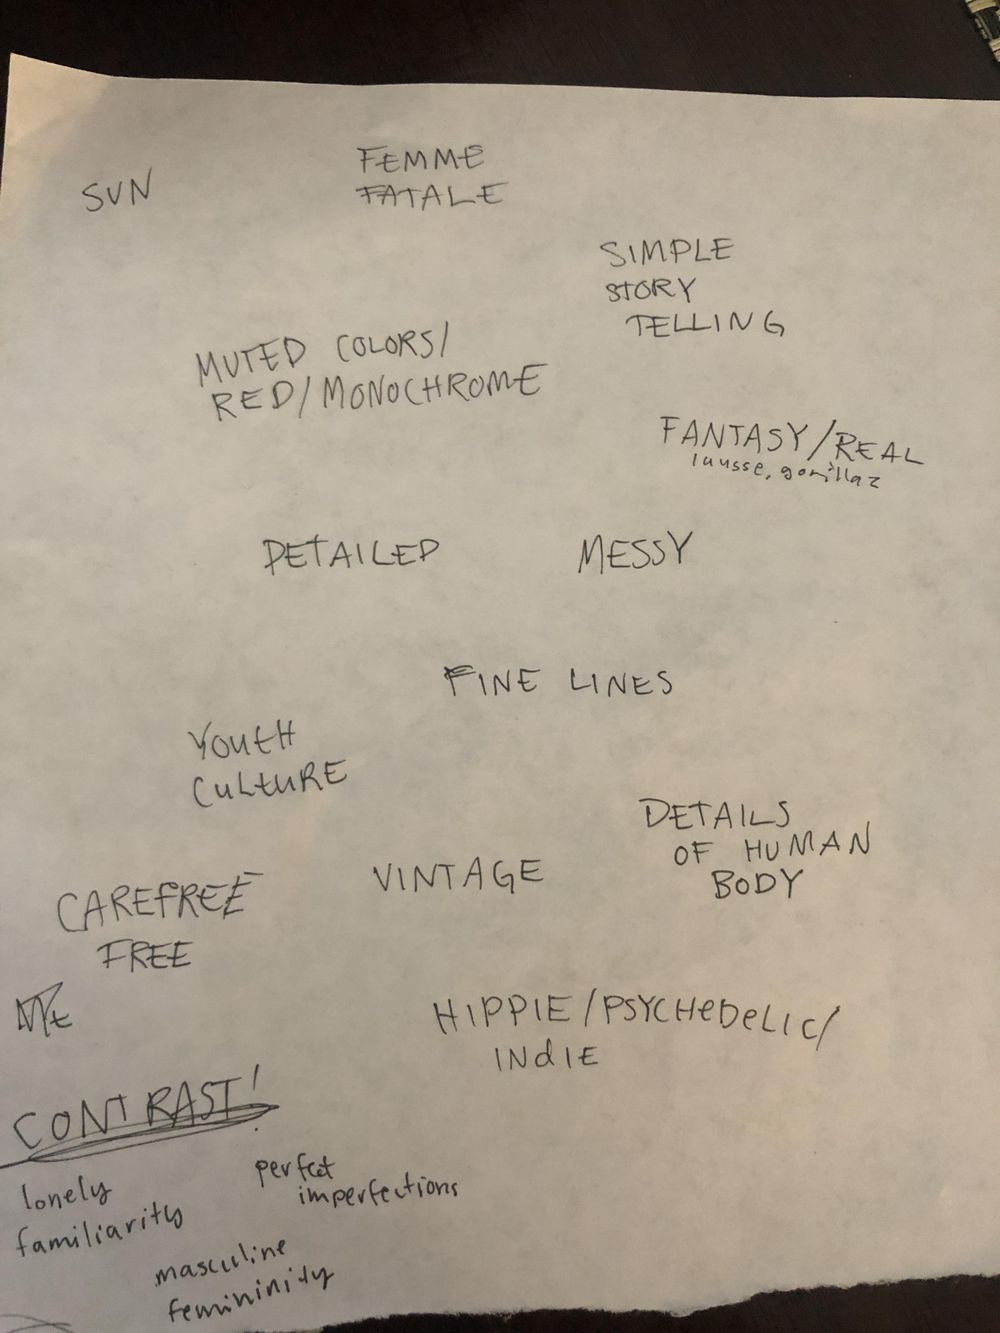 SUN
FEMME
FATALE
SIMPLE
STORY
TELLING
MUTED COLORS/
RED/MONOCHROME
FANTASY/REAL
gorillaz
DETAILED
MESSY
FINE LINES
YOUTH
CULTURE
DETAILS
OF HUMAN
BODY
VINTAGE
CAREFREE
FREE
HIPPIE/PSYCHEDELIC/
INDIE
CONTRAST!
lonely
familiarity
perfect
imperfections
masculine
femininity